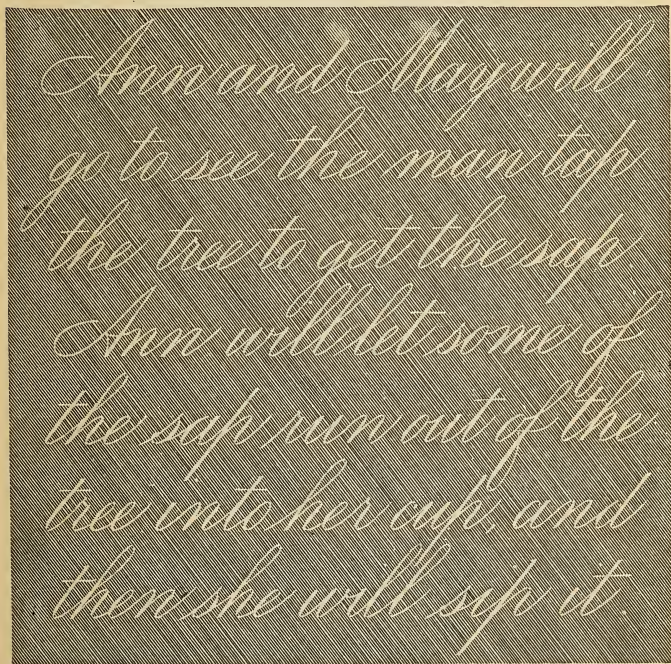 Ann and May will
go to see the man tap
the tree to get the sap
Ann will let some of
the sap run out of the
tree into her cup, and
then she will sip it.